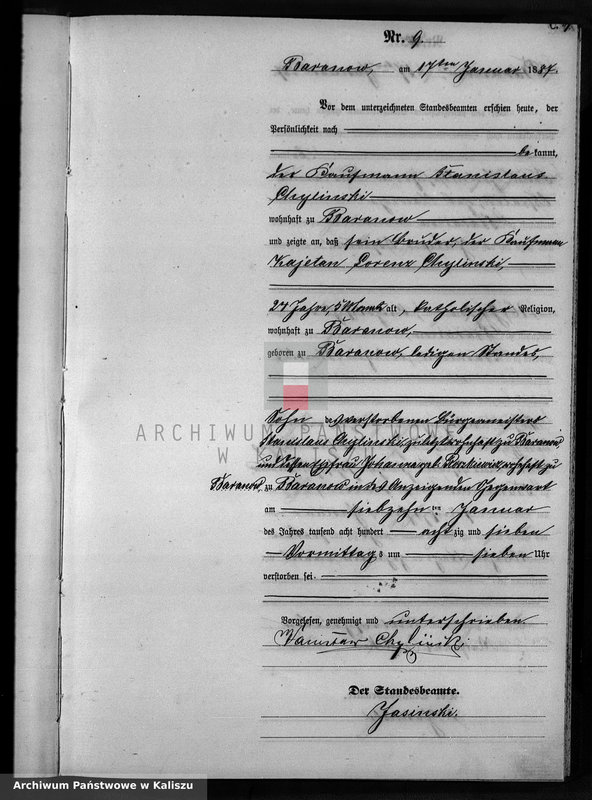 C.
Nr. 9.
Baranow, am 17ten Januar 1887.
Vor dem unterzeichneten Standesbeamten erschien heute, der
Persönlichkeit nach
bekannt,
der Kaufmann Stanislaus
Chylinski
wohnhaft zu Baranow
und zeigte an, daß sein Bruder, der Kaufmann
Kajetan Lorenz Chylinski,
24 Jahre, 5 Monat alt, katholischer Religion,
wohnhaft zu Baranow,
geboren zu Baranow, ledigen Standes,
Sohn des verstorbenen Bürgermeisters
Stanislaus Chylinski, zuletzt wohnhaft zu Baranow
und dessen Ehefrau Johanna geb. wohnhaft zu
Baranow, zu Baranow in des Anzeigenden Gegenwart
am siebzehnten Januar
des Jahres tausend acht hundert achtzig und sieben
Vormittags um sieben Uhr
verstorben sei.
Vorgelesen, genehmigt und unterschrieben
Stanisław Chyliński
Der Standesbeamte.
Jasinski.
ARCHIWUM PAŃSTWOWE
W KALISZU
Archiwum Państwowe w Kaliszu